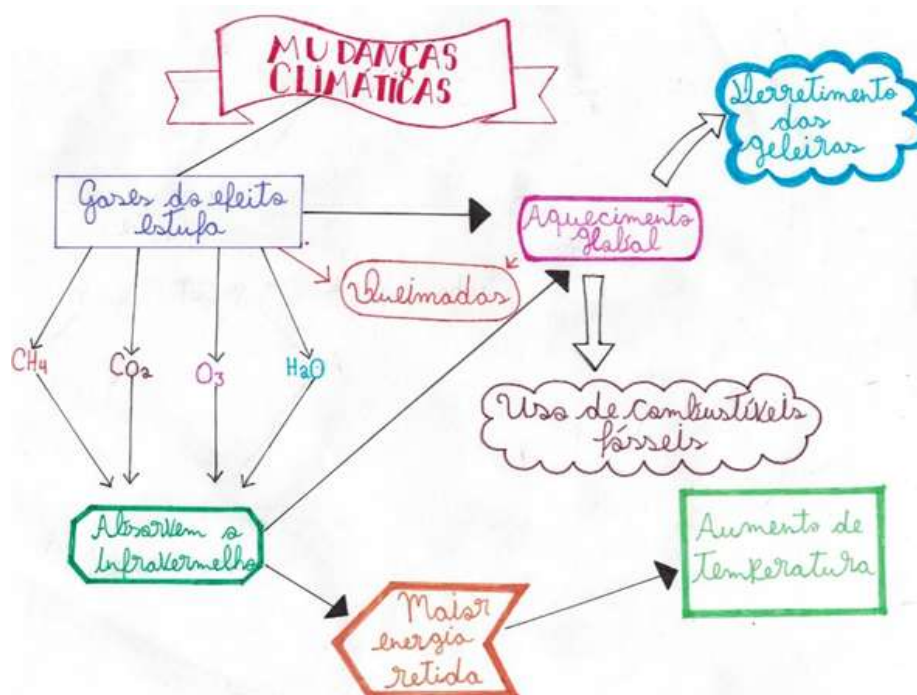 MUDANÇAS
CLIMÁTICAS
Derretimento
das
geleiras
Gases do efeito
estufa
Aquecimento
Global
Queimadas
CH4
CO2
O3
H2O
Uso de combustíveis
fósseis
Absorvem o
infravermelho
Aumento de
Temperatura
Maior
energia
retida